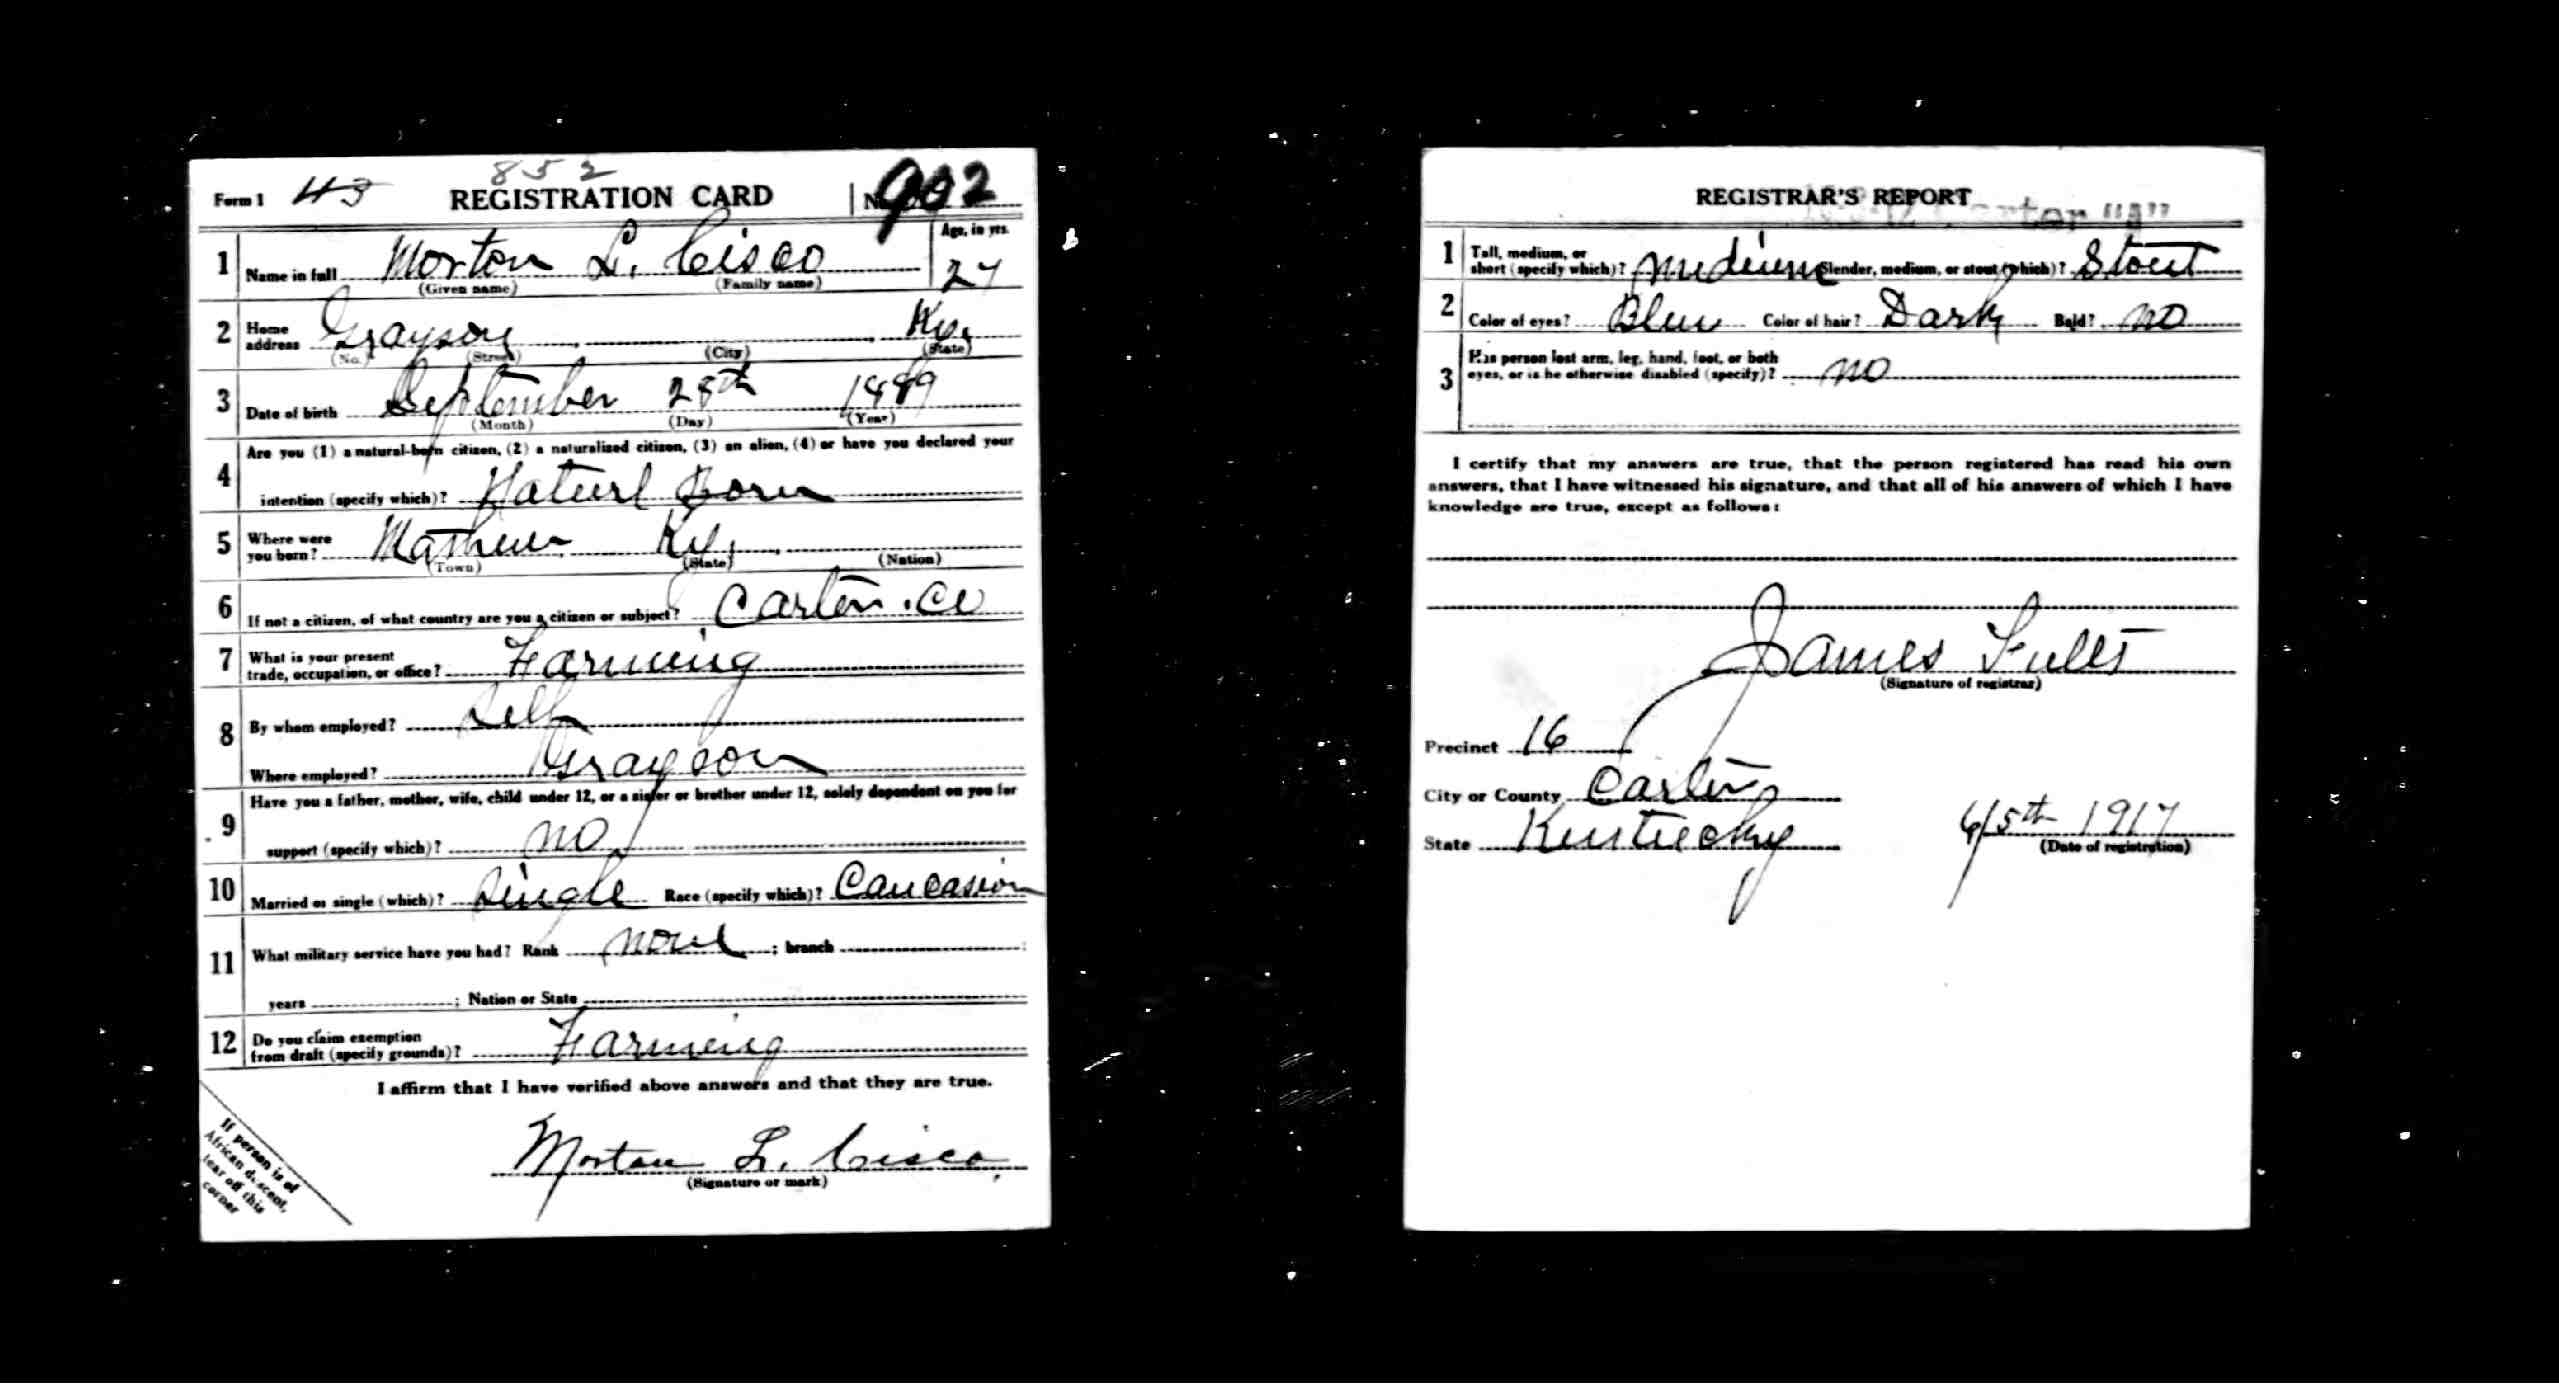 852
Form 1 43 REGISTRATION CARD No. 902
1 Name in full Morton L. Cisco Age, in yrs. 27
(Given name) (Family name)
2 Home address Grayson Ky.
(No.) (Street) (City) (State)
3 Date of birth September 28th 1889
(Month) (Day) (Year)
4 Are you (1) a natural-born citizen, (2) a naturalized citizen, (3) an alien, (4) or have you declared your
intention (specify which)? Naturl Born
5 Where were you born? Ky.
(Town) (State) (Nation)
6 If not a citizen, of what country are you a citizen or subject? Carter. Co
7 What is your present
trade, occupation, or office? Farming
8 By whom employed? Self
Where employed? Grayson
9 Have you a father, mother, wife, child under 12, or a sister or brother under 12, solely dependent on you for
support (specify which)? no
10 Married or single (which)? Single Race (specify which)? Caucasion
11 What military service have you had? Rank none ; branch ;
years ; Nation or State
12 Do you claim exemption
from draft (specify grounds)? Farming
I affirm that I have verified above answers and that they are true.
Morton L. Cisco
(Signature or mark)
If person is of
African descent,
tear off this
corner
REGISTRAR'S REPORT
"A"
1 Tall, medium, or
short (specify which)? medium Slender, medium, or stout (which)? Stout
2 Color of eyes? Blue Color of hair? Dark Bald? no
3 Has person lost arm, leg, hand, foot, or both
eyes, or is he otherwise disabled (specify)? no
I certify that my answers are true, that the person registered has read his own
answers, that I have witnessed his signature, and that all of his answers of which I have
knowledge are true, except as follows:
James Fults
(Signature of registrar)
Precinct 16
City or County Carter
State Kentucky 6/5th 1917
(Date of registration)